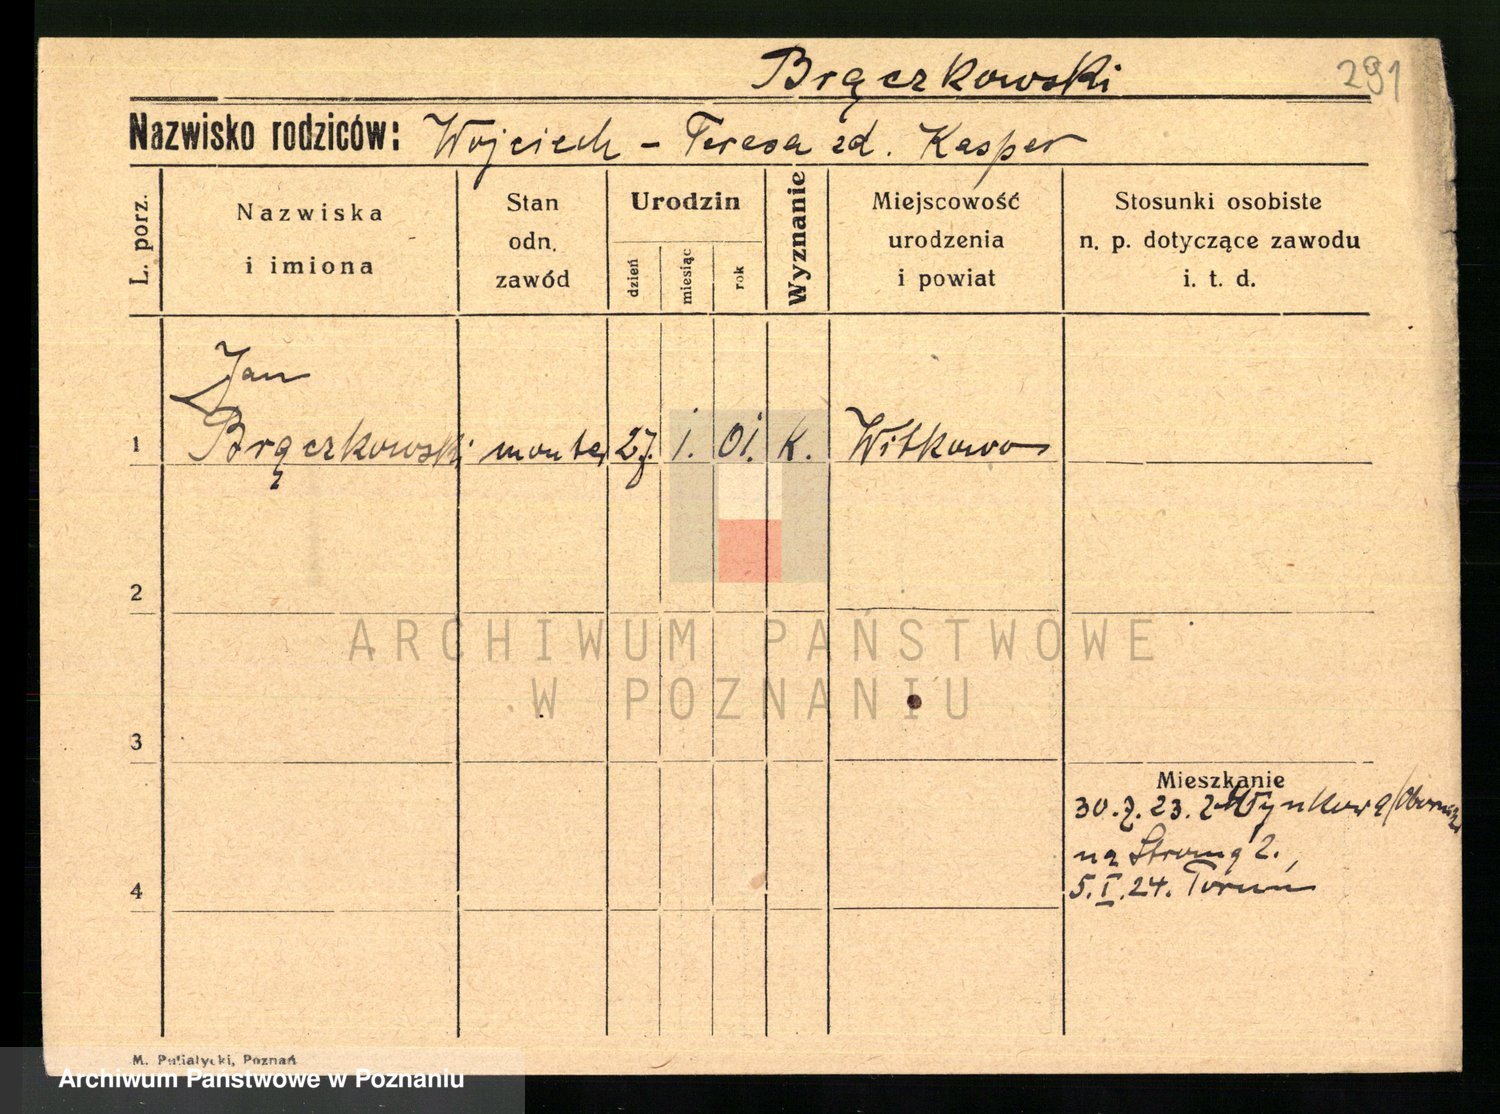 Brączkowski 291
Nazwisko rodziców: Wojciech - Teresa zd. Kasper
L. porz.
Nazwiska
i imiona
Stan
odn.
zawód
Urodzin
dzień
miesiąc
rok
Wyznanie
Miejscowość
urodzenia
i powiat
Stosunki osobiste
n. p. dotyczące zawodu
i. t. d.
Jan
1 Brączkowski monter 27. 1. 01. K. Witkowo
2
ARCHIWUM PAŃSTWOWE
W POZNANIU
3
Mieszkanie
30.7.23. z
na Stromą 2.
4
5.I.24. Toruń
M. Putiatycki, Poznań
Archiwum Państwowe w Poznaniu